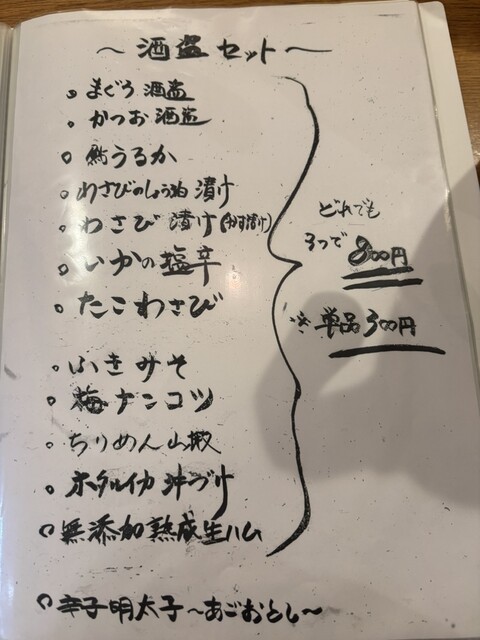 ～酒盗セット～
○まぐろ酒盗
○かつお酒盗
○鮎うるか
○わさびのしょう油漬け
○わさび漬け(かす漬け)
○いかの塩辛
○たこわさび
○ふきみそ
○梅ナンコツ
○ちりめん山椒
○ホタルイカ沖づけ
○無添加熟成生ハム
どれでも
3つで 800円
※単品300円
○辛子明太子～あごおとし～